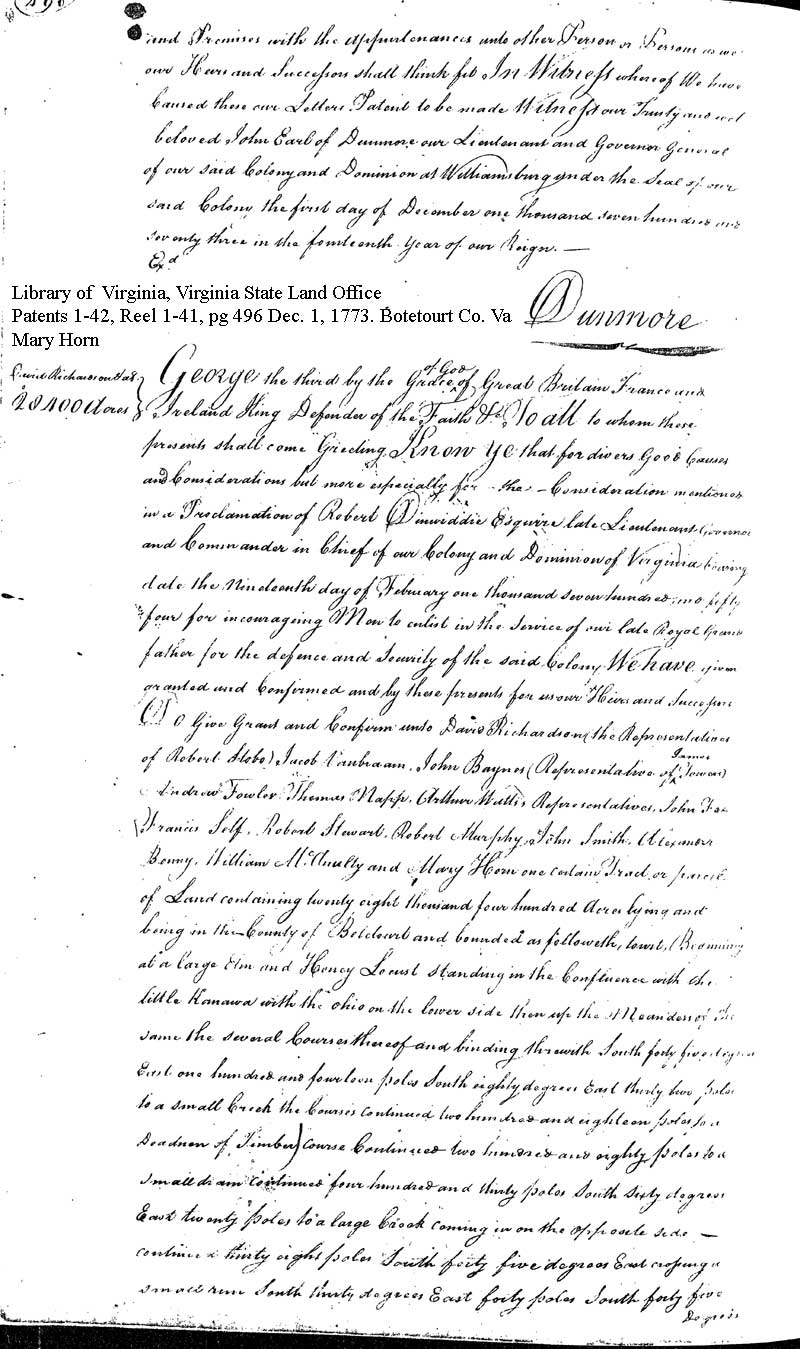 496
and Premises with the Appurtenances unto other Person or Persons as we
our Heirs and Successors shall think fit In Witness whereof We have
Caused these our Letters Patent to be made Witness our Trusty and well
beloved John Earl of Dunmore our Lieutenant and Governor General
of our said Colony and Dominion at Williamsburg under the Seal of our
said Colony the first day of December one thousand seven hundred and
seventy three in the fourteenth Year of our Reign. —
Exd
Library of Virginia, Virginia State Land Office
Patents 1-42, Reel 1-41, pg 496 Dec. 1, 1773. Botetourt Co. Va
Mary Horn
Dunmore
David Richardson &al.
28400 Acres
George the third by the Grace of God of Great Britain France and
Ireland King Defender of the Faith &c. To all to whom these
presents shall come Greeting Know Ye that for divers Good Causes
and Considerations but more especially for the Consideration mentioned
in a Proclamation of Robert Dinwiddie Esquire late Lieutenant Governor
and Commander in Chief of our Colony and Dominion of Virginia bearing
date the Nineteenth day of February one thousand seven hundred and fifty
four for incourageing Men to enlist in the Service of our late Royal Grand
father for the defence and Security of the said Colony We have given
granted and Confirmed and by these presents for us our Heirs and Successors
Do Give Grant and Confirm unto David Richardson (the Representatives
of Robert Stobo) Jacob Vanbraam, John Baynes (Representative of James Towers)
Andrew Fowler Thomas Napp, Arthur Watts Representatives, John Fox
Francis Self, Robert Stewart, Robert Murphy, John Smith, Alexander
Bonny, William McAnulty and Mary Horn one certain Tract or parcel
of Land containing twenty eight thousand four hundred Acres lying and
being in the County of Botetourt and bounded as followeth, towit, (Beginning
at a large Elm and Honey Locust standing in the Confluence with the
little Kanawa with the Ohio on the lower side then up the Meanders of the
same the several Courses thereof and binding threwith South forty five degrees
East one hundred and fourteen poles South eighty degrees East thirty two poles
to a small Creek the Courses continued two hundred and eighteen poles to a
Deadnen of Timber) course Continued two hundred and eighty poles to a
small drain continued four hundred and thirty poles South sixty degrees
East twenty poles to a large Crook coming in on the opposite side —
continued thirty eight poles South forty five degrees East crossing a
small run South thirty degrees East forty poles South forty five
Degrees